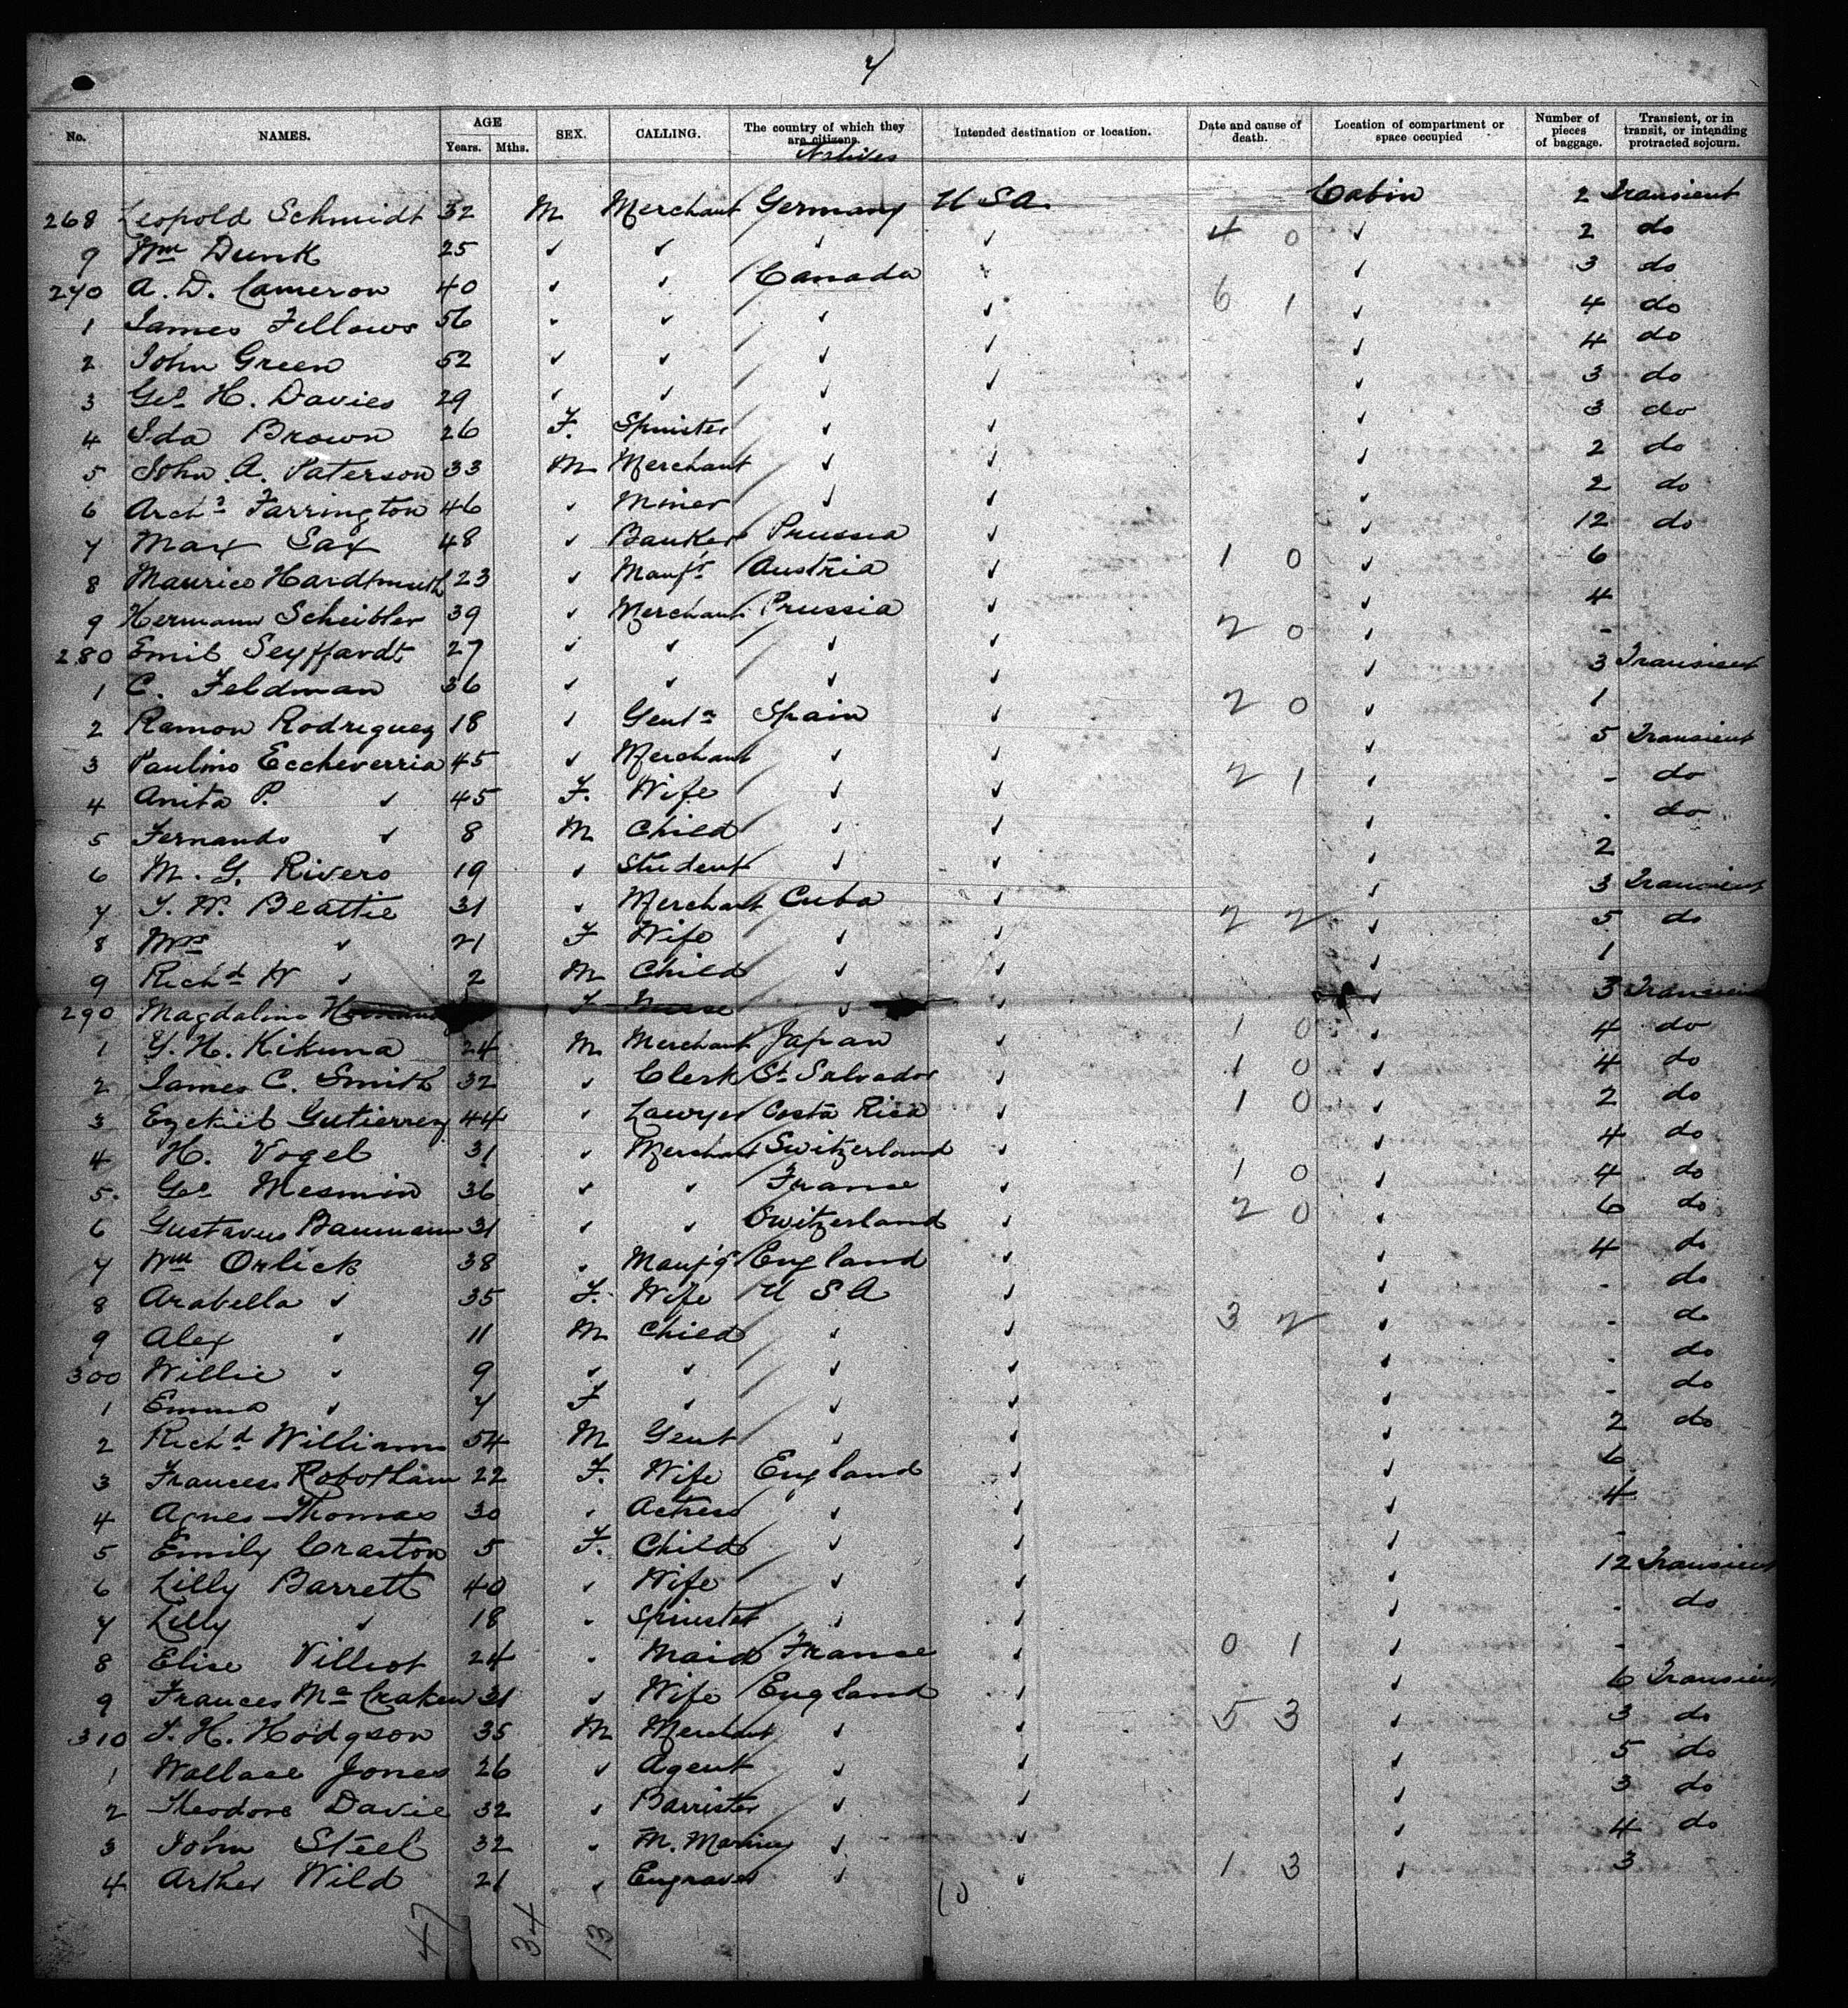 7
No. NAMES. AGE Years. Mths. SEX. CALLING. The country of which they are citizens. Natives Intended destination or location. Date and cause of death. Location of compartment or space occupied Number of pieces of baggage. Transient, or in transit, or intending protracted sojourn.
268 Leopold Schmidt 32 M Merchant Germany U S A. Cabin 2 Transient
9 Wm Dunk 25 ✓ ✓ ✓ ✓ 4 0 ✓ 2 do
270 A. D. Cameron 40 ✓ ✓ Canada ✓ ✓ 3 do
1 James Fellows 56 ✓ ✓ ✓ ✓ 6 1 ✓ 4 do
2 John Green 52 ✓ ✓ ✓ ✓ ✓ 4 do
3 Geo H. Davies 29 ✓ ✓ ✓ ✓ ✓ 3 do
4 Ida Brown 26 F. Spinster ✓ ✓ ✓ 3 do
5 John A. Paterson 33 M Merchant ✓ ✓ ✓ 2 do
6 Archd Farrington 46 ✓ Miner ✓ ✓ ✓ 2 do
7 Max Sax 48 ✓ Banker Prussia ✓ ✓ 12 do
8 Maurice Hardtmuth 23 ✓ Manfr Austria ✓ 1 0 ✓ 6
9 Hermann Scheibler 39 ✓ Merchant Prussia ✓ ✓ 4
280 Emil Seyffardt 27 ✓ ✓ ✓ ✓ 2 0 ✓ -
1 C. Feldman 36 ✓ ✓ ✓ ✓ ✓ 3 Transient
2 Ramon Rodriguez 18 ✓ Gentn Spain ✓ 2 0 ✓ 1
3 Paulino Eccheverria 45 ✓ Merchant ✓ ✓ ✓ 5 Transient
4 Anita P. ✓ 45 F. Wife ✓ ✓ 2 1 ✓ - do
5 Fernando ✓ 8 M Child ✓ ✓ ✓ - do
6 M. G. Rivero 19 ✓ Student ✓ ✓ ✓ 2
7 T. W. Beattie 31 ✓ Merchant Cuba ✓ ✓ 3 Transient
8 Mrs ✓ 21 F Wife ✓ ✓ 2 2 ✓ 5 do
9 Richd W ✓ 2 M Child ✓ ✓ ✓ 1
290 Magdalino F Nurse ✓ ✓ ✓ 3 Transient
1 Y. H. Kikuna 24 M Merchant Japan ✓ 1 0 ✓ 4 do
2 James C. Smith 32 ✓ Clerk St Salvador ✓ 1 0 ✓ 4 do
3 Ezekiel Gutierrez 44 ✓ Lawyer Costa Rica ✓ 1 0 ✓ 2 do
4 H. Vogel 31 ✓ Merchant Switzerland ✓ ✓ 4 do
5. Geo Mesmin 36 ✓ ✓ France ✓ 1 0 ✓ 4 do
6 Gustavus Baumann 31 ✓ ✓ Switzerland ✓ 2 0 ✓ 6 do
7 Wm Orlick 38 ✓ Manfg England ✓ ✓ 4 do
8 Arabella ✓ 35 F. Wife U S A ✓ ✓ - do
9 Alex ✓ 11 M Child ✓ ✓ 3 2 ✓ - do
300 Willie ✓ 9 ✓ ✓ ✓ ✓ ✓ - do
1 Emma ✓ 7 F ✓ ✓ ✓ ✓ - do
2 Richd Williams 54 M Gent ✓ ✓ ✓ 2 do
3 Frances Robotham 22 F. Wife England ✓ ✓ 6
4 Agnes Thomas 30 ✓ Actress ✓ ✓ ✓ 4
5 Emily Craston 5 F. Child ✓ ✓ ✓ -
6 Lilly Barrett 40 ✓ Wife ✓ ✓ ✓ 12 Transient
7 Lilly ✓ 18 ✓ Spinster ✓ ✓ ✓ - do
8 Elise Villiot 24 ✓ Maid France ✓ 0 1 ✓ -
9 Frances McCraken 31 ✓ Wife England ✓ ✓ 6 Transient
310 T. H. Hodgson 35 M Merchant ✓ ✓ 5 3 ✓ 3 do
1 Wallace Jones 26 ✓ Agent ✓ ✓ ✓ 5 do
2 Theodore Davie 32 ✓ Barrister ✓ ✓ ✓ 3 do
3 John Steel 32 ✓ M. Mariner ✓ ✓ ✓ 4 do
4 Arther Wild 21 ✓ Engraver ✓ ✓ 1 3 ✓ 3
47 34 13 10